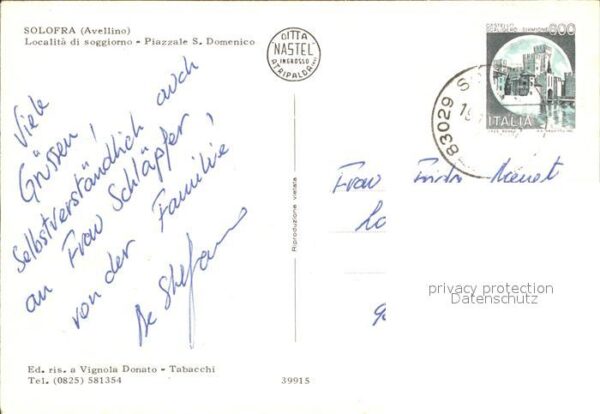 SOLOFRA (Avellino)
Località di soggiorno - Piazzale S. Domenico
DITTA
"NASTEL"
INGROSSO
ATRIPALDA
CASTELLO
SCALIGERO - SIRMIONE 800
ITALIA
83029 S
Viele
Grüssen,
Selbstverständlich auch
an Frau Schläpfer,
von der Familie
De Stefano
Riproduzione vietata
Frau
privacy protection
Datenschutz
Ed. ris. a Vignola Donato - Tabacchi
Tel. (0825) 581354
39915